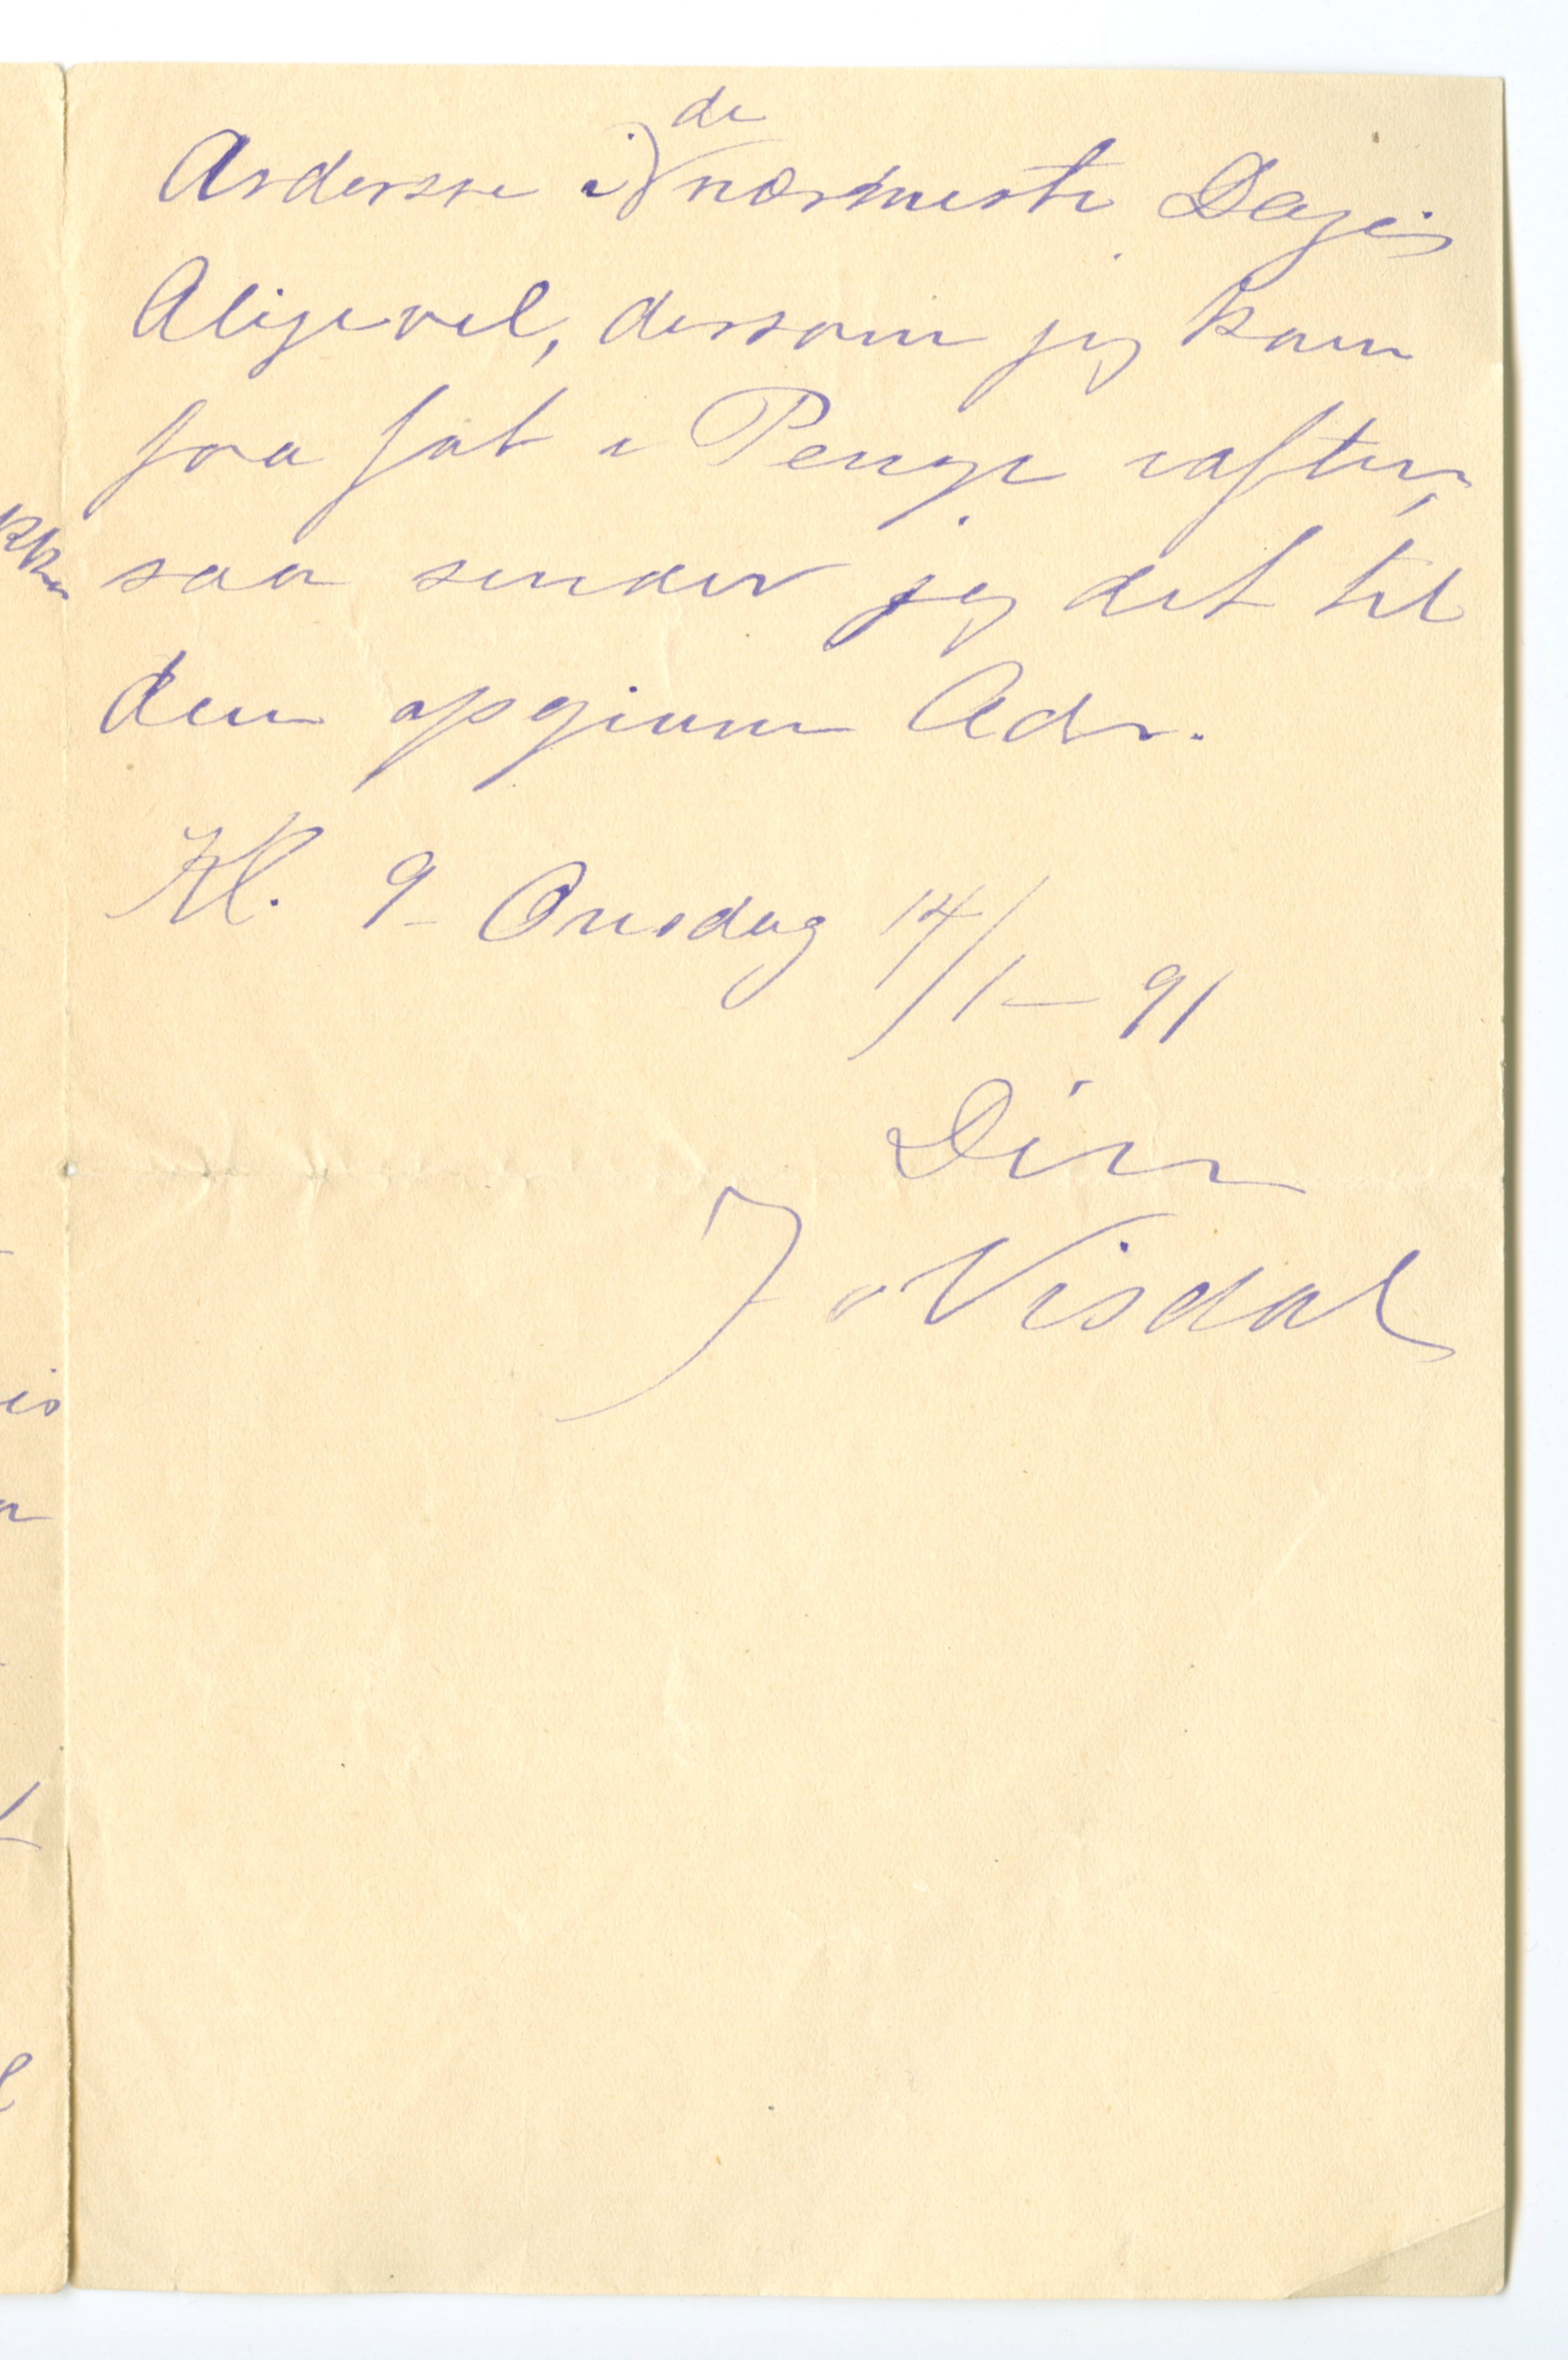 Andersen i de nærmeste Dage.
Aligevel, dersom jeg kan
faa fat i Penge iaften,
saa sender jeg det til
den opgivne Adr.
Kl. 9 - Onsdag 14/1 - 91
Din
Jo Visdal